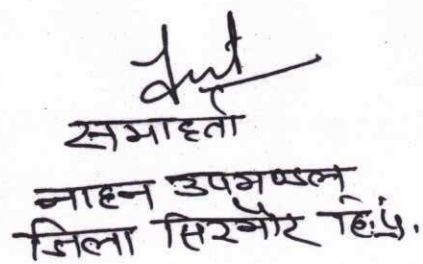 समाहर्ता
नाहन उपमण्डल
जिला सिरमौर हि.प्र.